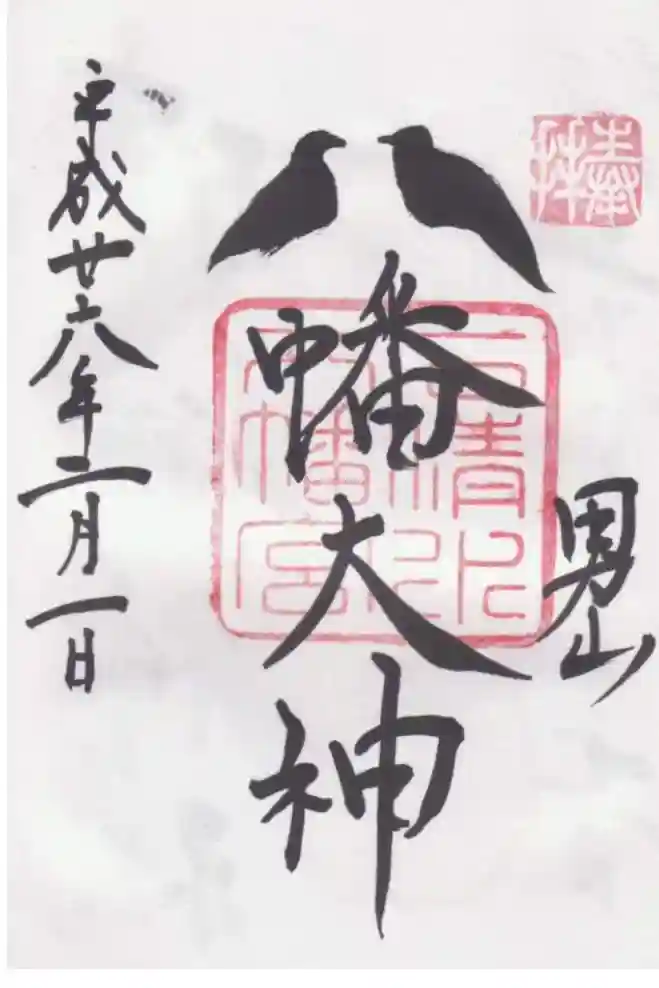 奉拝
男山
八幡大神
石清水
八幡宮
平成廿六年二月一日